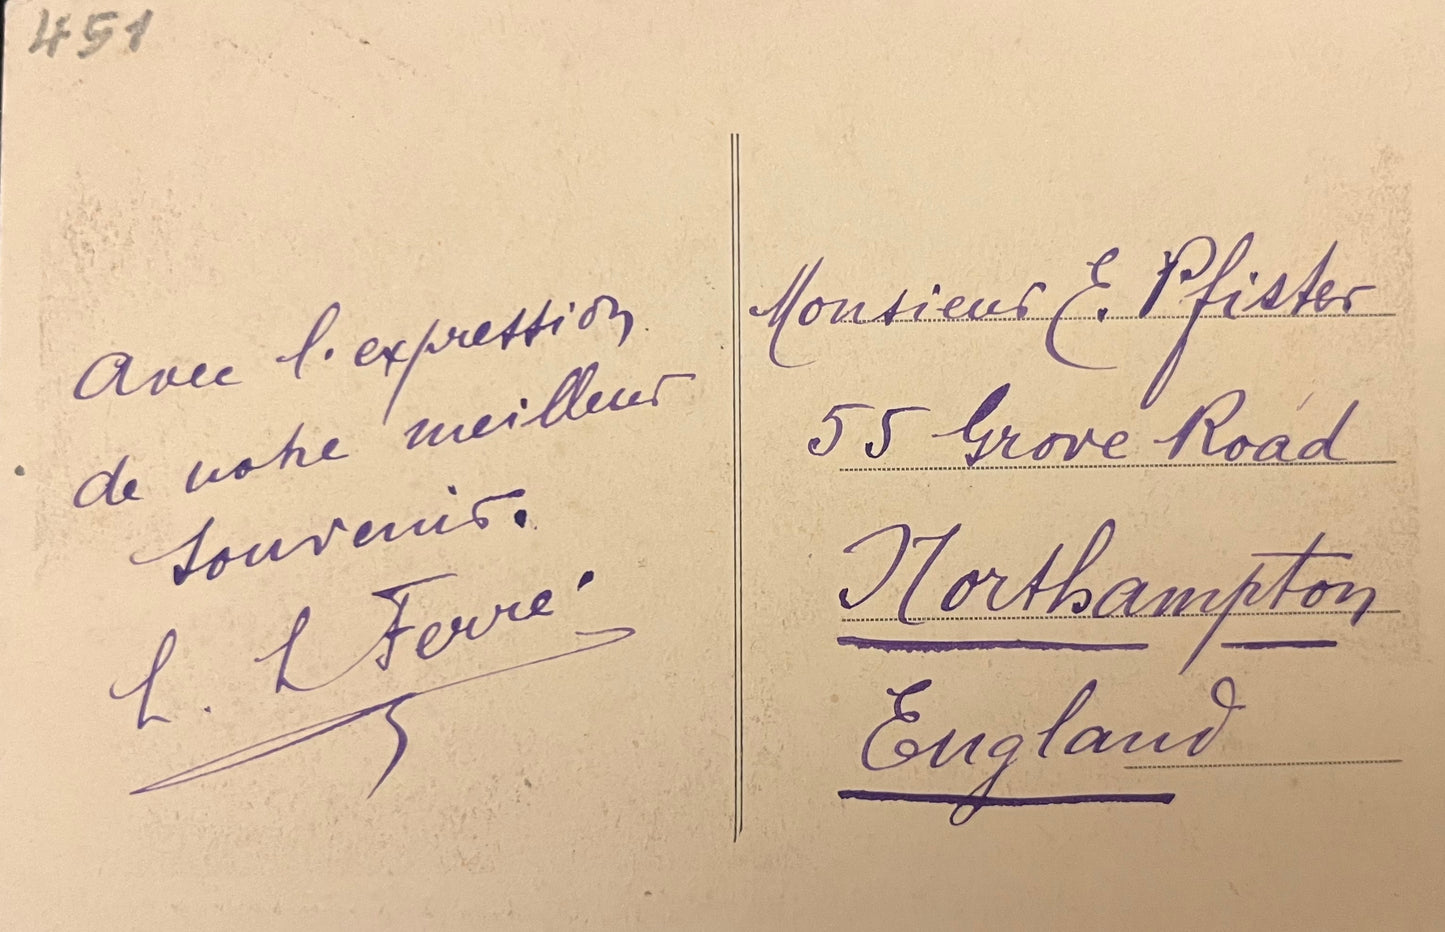 451
Avec l'expression
de notre meilleur
souvenir.
L. L Ferré
Monsieur E. Pfister
55 Grove Road
Northampton
England